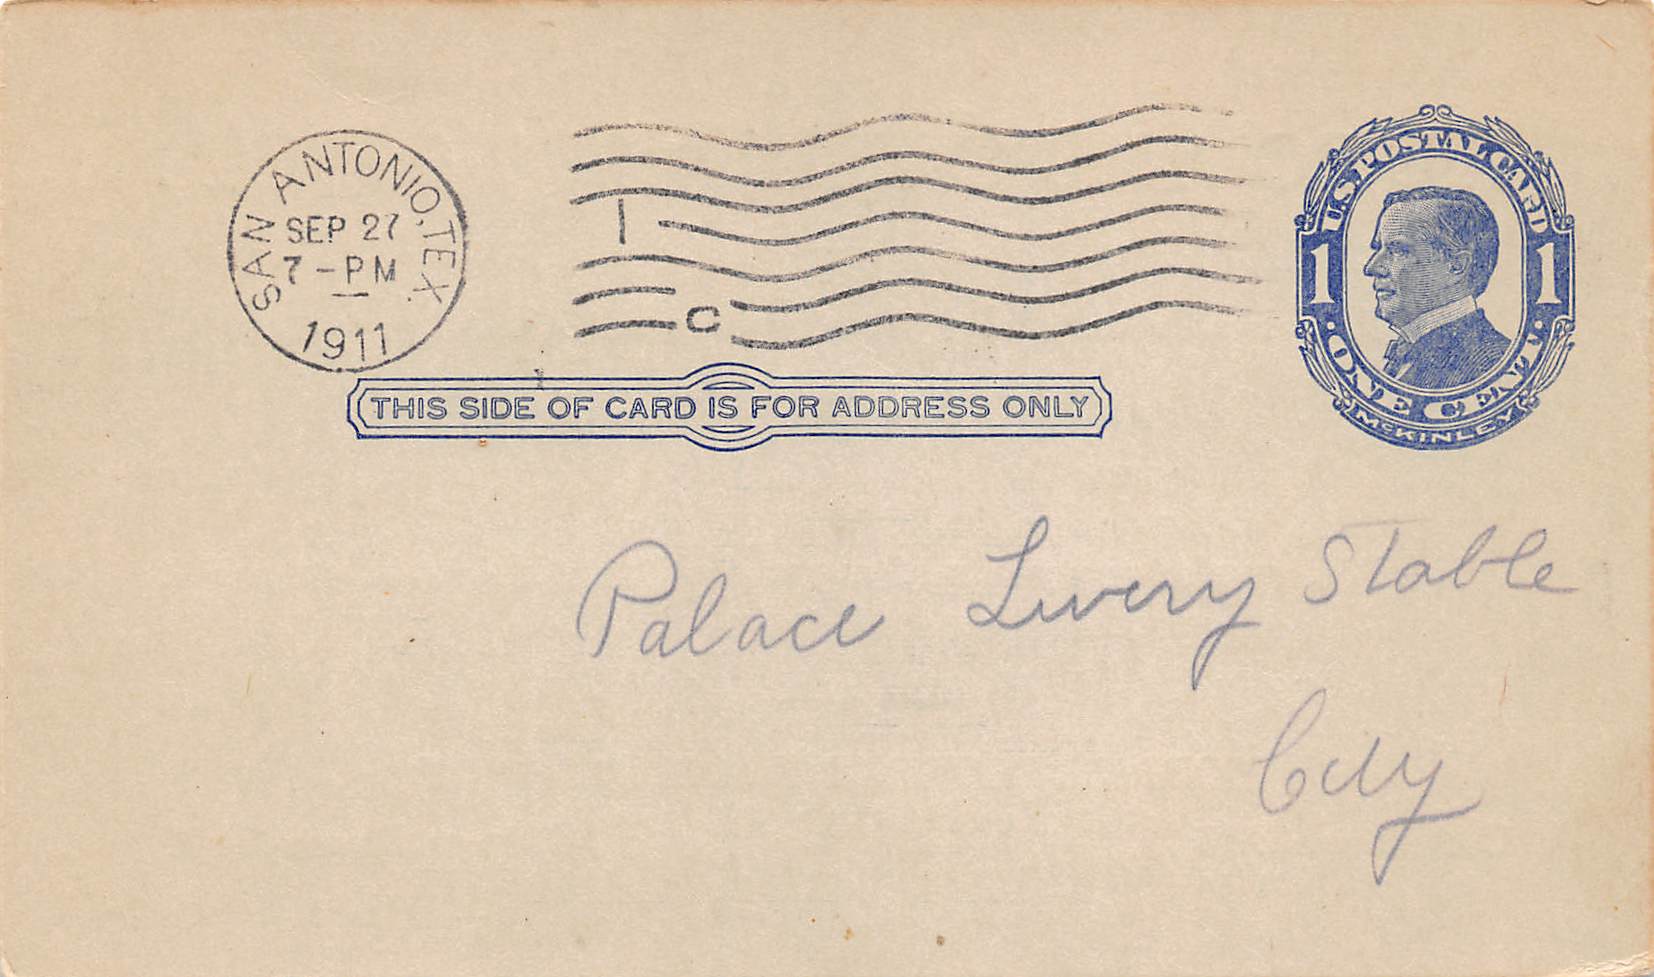 SAN ANTONIO, TEX.
SEP 27
7-PM
1911
1
C
U.S. POSTAL CARD
1 1
ONE CENT
McKINLEY
THIS SIDE OF CARD IS FOR ADDRESS ONLY
Palace Livery Stable
City